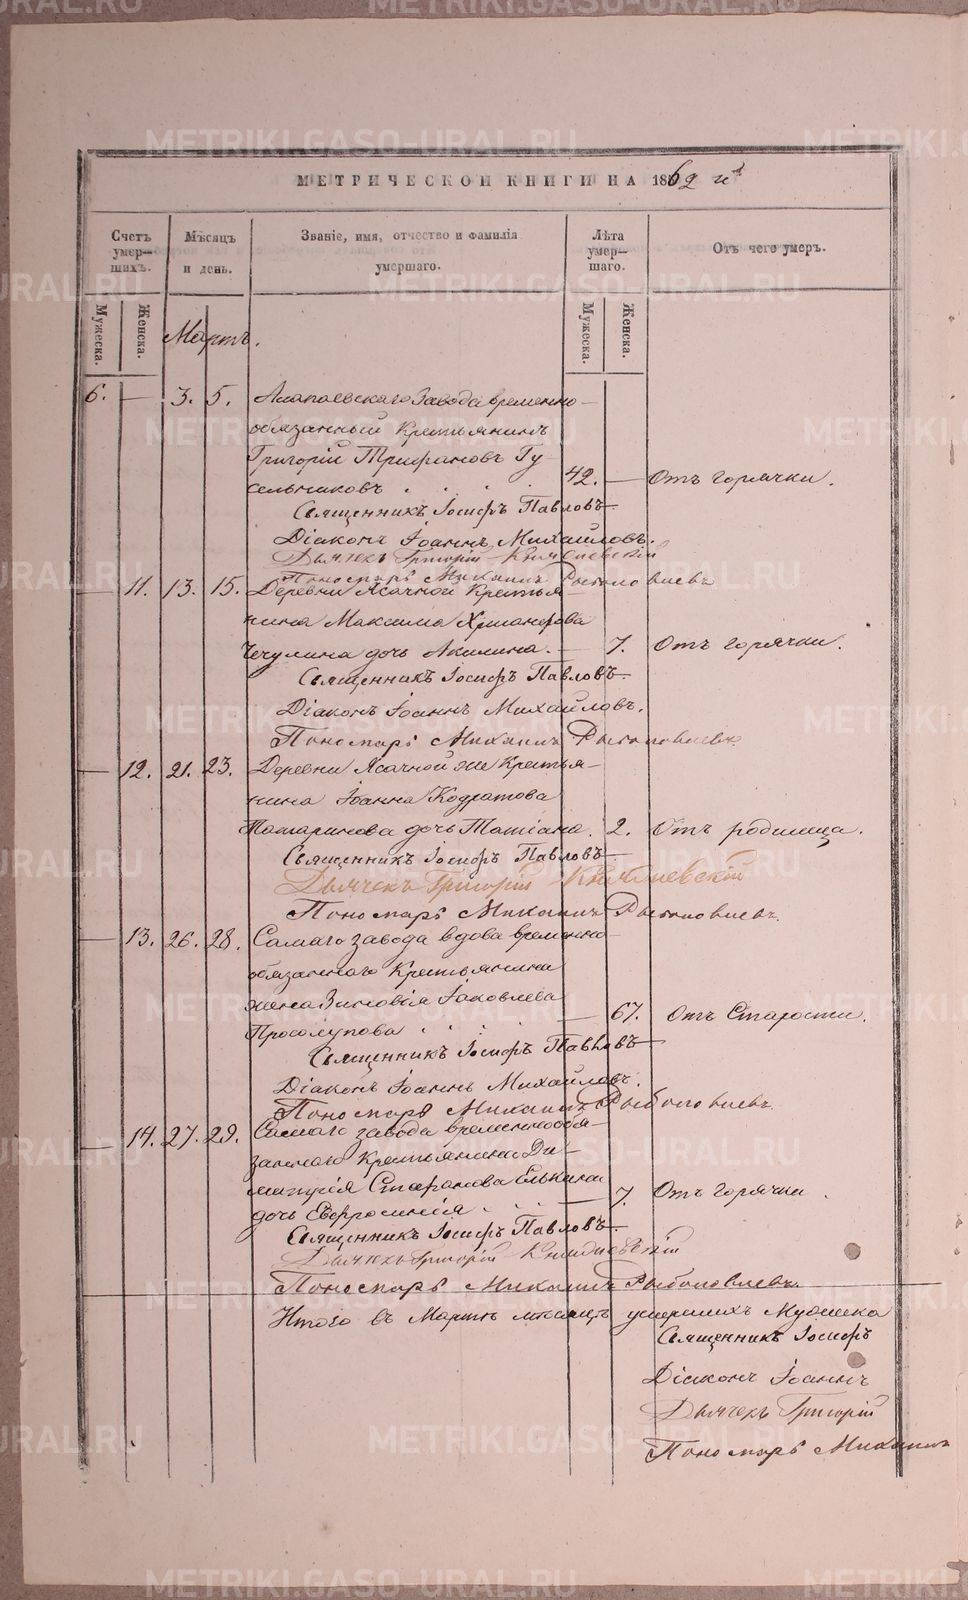 МЕТРИЧЕСКОЙ КНИГИ НА 1862 й
Счетъ умер-шихъ. Мѣсяцъ и день. Званіе, имя, отчество и фамилія умершаго. Лѣта умер-шаго. Отъ чего умеръ.
Мужеска. Женска. Мужеска. Женска.
Мартъ.
6. — 3. 5. Алапаевскаго Завода временно-
обязанный Крестьянинъ
Григорій Трифановъ Гу
сельниковъ . . . . 42. — Отъ горячки.
Священникъ Іосифъ Павловъ
Діаконъ Іоаннъ Михайловъ.
Дьячекъ Григорій
Пономарь Михаилъ
— 11. 13. 15. Деревни Ясачной Крестья
нина Максима Хрисанфова
Чечулина дочь Акилина. — 7. Отъ горячки.
Священникъ Іосифъ Павловъ
Діаконъ Іоаннъ Михайловъ.
Пономарь Михаилъ
— 12. 21. 23. Деревни Ясачной же Крестья-
нина Іоанна Кодратова
Татаринова дочь Татіана. 2. Отъ родимца.
Священникъ Іосифъ Павловъ
Дьячекъ Григорій
Пономарь Михаилъ
— 13. 26. 28. Самаго завода вдова временно
обязаннаго Крестьянина
жена Зиновія Іаковлева
Просолупова . . . . — 67. Отъ Старости.
Священникъ Іосифъ Павловъ
Діаконъ Іоаннъ Михайловъ.
Пономарь Михаилъ
— 14. 27. 29. Самаго завода временнообя-
заннаго Крестьянина Ди-
митрія Стефанова Елькина
дочь Евфросинія . . — 7. Отъ горячки .
Священникъ Іосифъ Павловъ
Дьячекъ Григорій
Пономарь Михаилъ
Итого въ Мартѣ мѣсяцѣ умершихъ Мужеска
Священникъ Іосифъ
Діаконъ Іоаннъ
Дьячекъ Григорій
Пономарь Михаилъ
METRIKI.GASO-URAL.RU